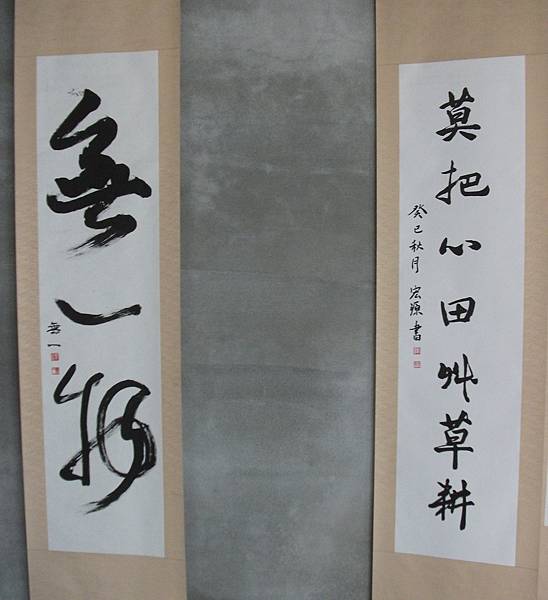 莫把心田艸草耕
癸巳秋月 宏源書
無一物
無一